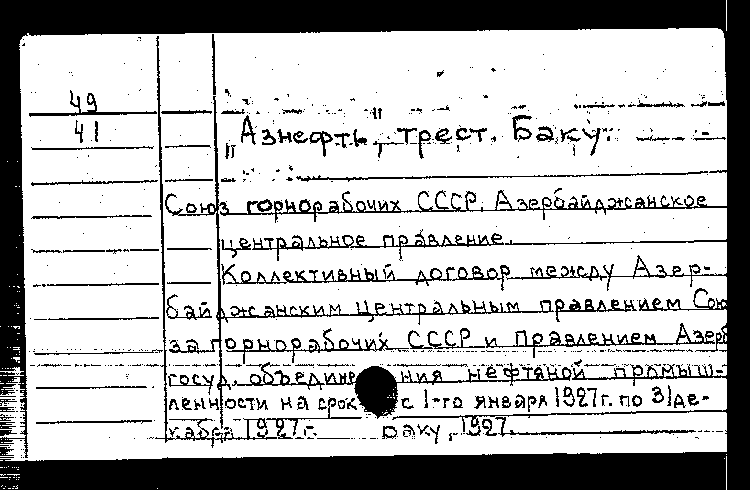 49
41
„Азнефть", трест. Баку.
Союз горнорабочих СССР. Азербайджанское
центральное правление.
Коллективный договор между Азер-
байджанским Центральным правлением Сою
за горнорабочих СССР и Правлением Азерб
госуд. объединения нефтяной промыш-
ленности на срок с 1-го января 1927г. по 31 де-
кабря 1927г. Баку, 1927.